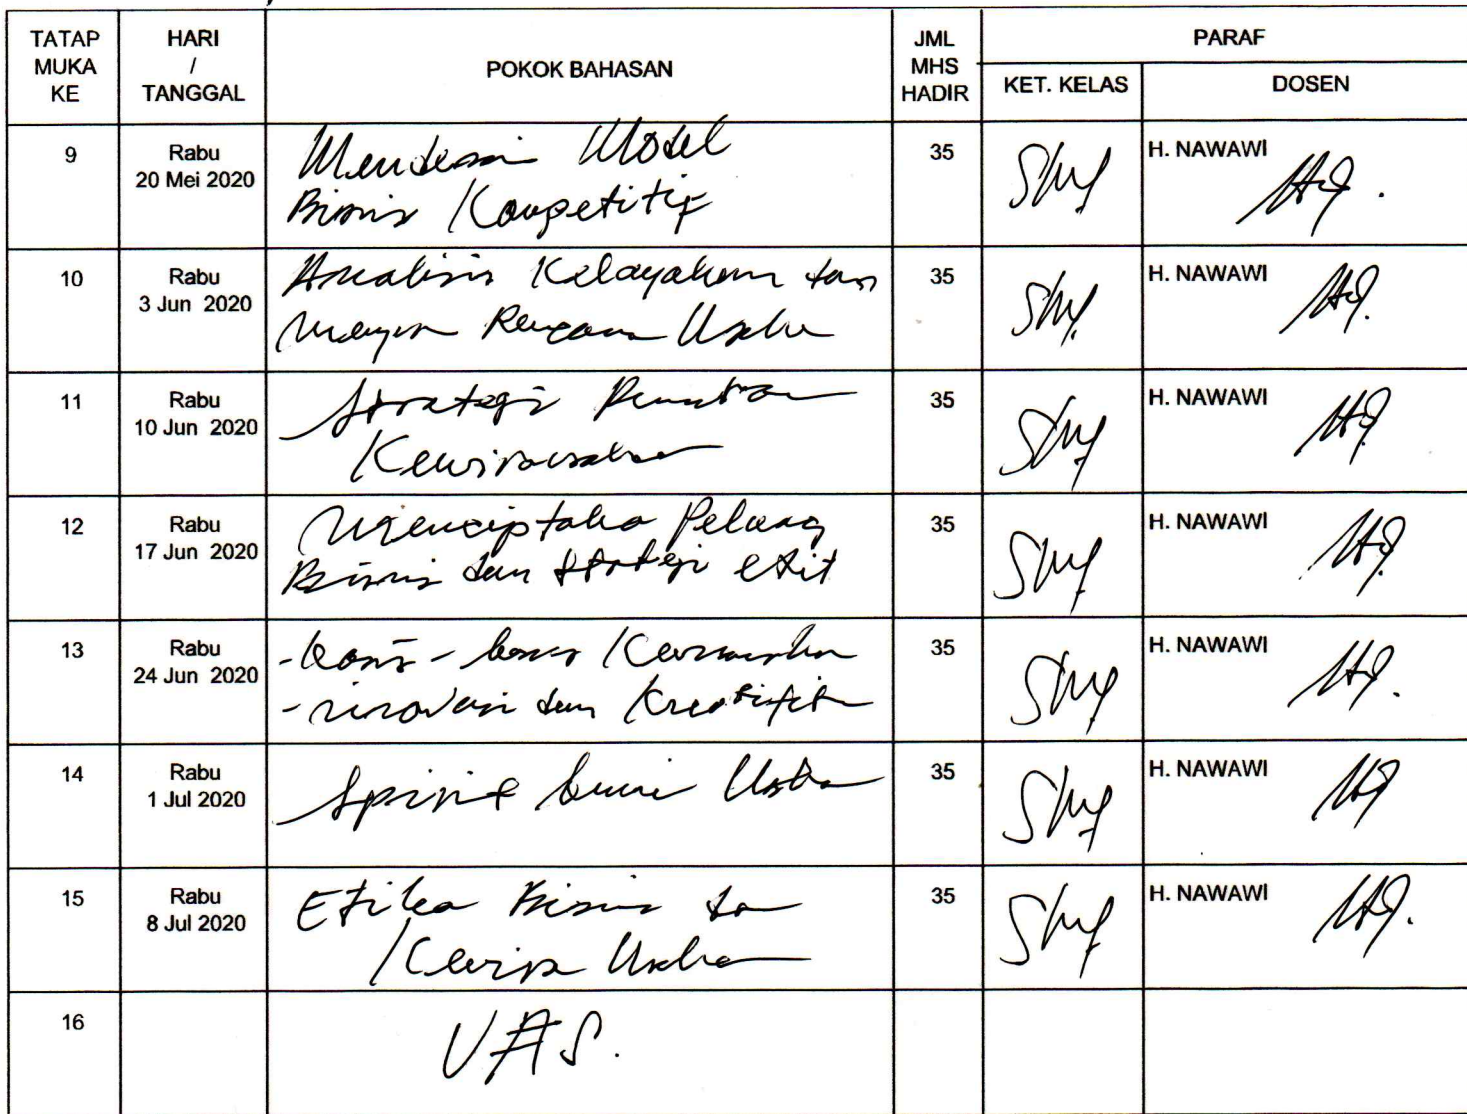 TATAP MUKA KE
HARI / TANGGAL
POKOK BAHASAN
JML MHS HADIR
PARAF
KET. KELAS
DOSEN
9
Rabu
20 Mei 2020
Mendesain Model
Bisnis Kompetitif
35
H. NAWAWI
10
Rabu
3 Jun 2020
Analisis Kelayakan dan
Rencana Usaha
35
H. NAWAWI
11
Rabu
10 Jun 2020
Strategi
Kewirausahaan
35
H. NAWAWI
12
Rabu
17 Jun 2020
Menciptaka Peluang
Bisnis dan Strategi exit
35
H. NAWAWI
13
Rabu
24 Jun 2020
-
- inovasi dan Kreatifitas
35
H. NAWAWI
14
Rabu
1 Jul 2020
Usaha
35
H. NAWAWI
15
Rabu
8 Jul 2020
Etika Bisnis dan
Kewira Usahaan
35
H. NAWAWI
16
UAS.